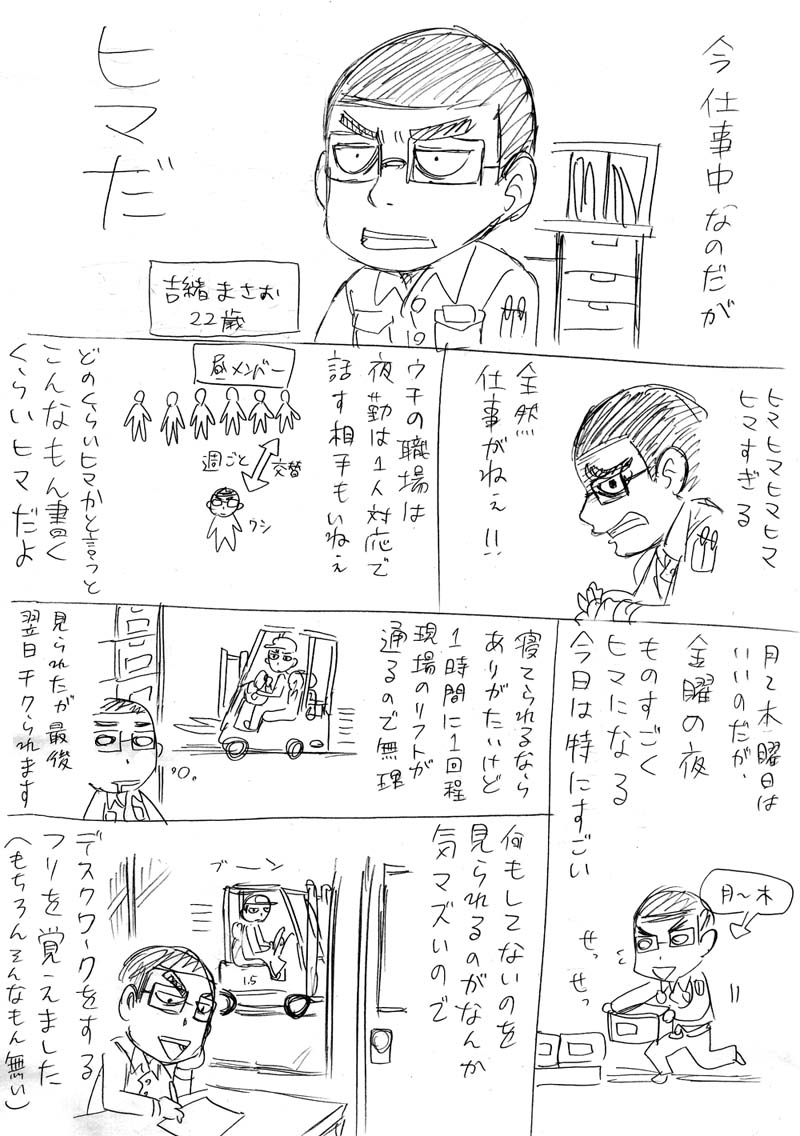 今仕事中なのだが
ヒマだ
吉緒まさお
22歳
ヒマヒマヒマヒマ
ヒマすぎる
全然
仕事がねぇ!!
ウチの職場は
夜勤は1人対応で
話す相手もいねぇ
昼メンバー
週ごと
交替
ワシ
どのくらいヒマかと言うと
こんなもん書く
くらいヒマだよ
月〜木曜日は
いいのだが、
金曜の夜
ものすごく
ヒマになる
今日は特にすごい
月〜木
せっ
せっ
寝てられるなら
ありがたいけど
1時間に1回程
現場のリフトが
通るので無理
見られたが最後
翌日チクられます
何もしてないのを
見られるのがなんか
気マズいので
ブーン
1.5
デスクワークをする
フリを覚えました
(もちろんそんなもん無い)